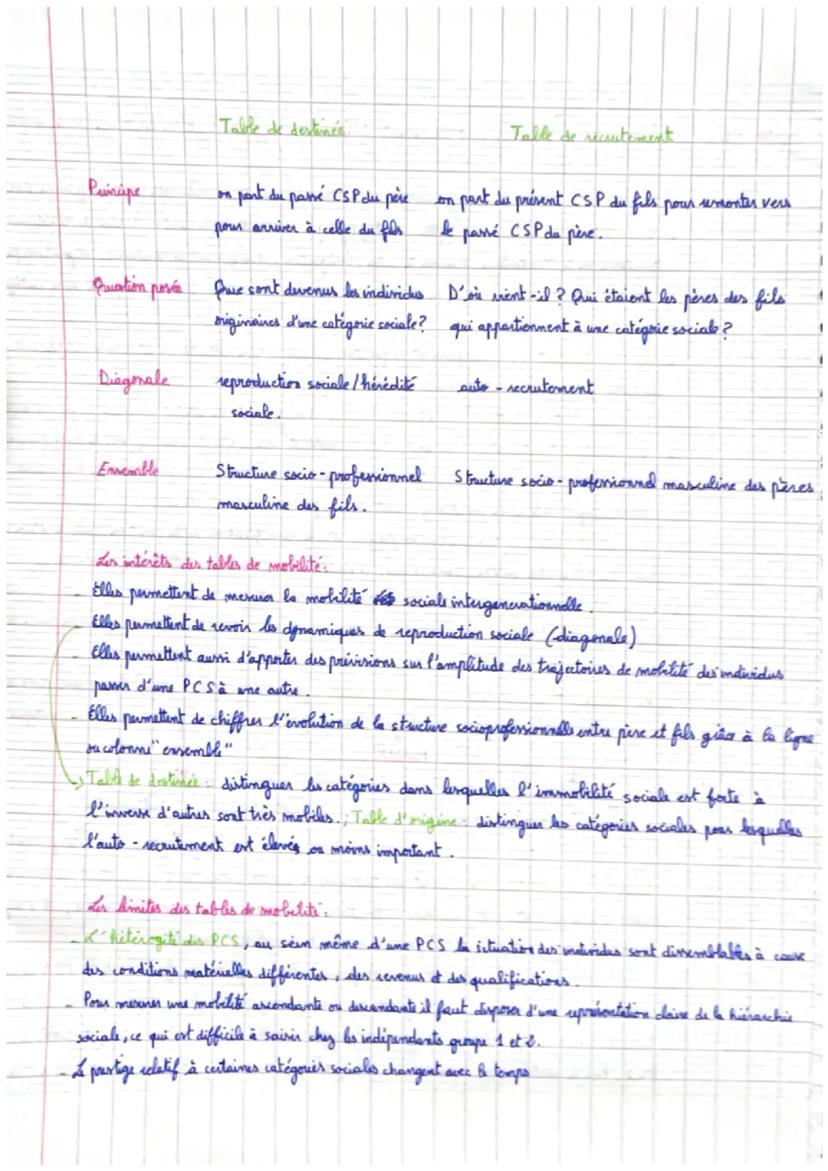 Table de destinée Table de recrutement
Principe on part du passé CSP du père on part du présent CSP du fils pour remonter vers
pour arriver à celle du fils le passé CSP du père.
Question posée Que sont devenus les individus D'où vient-il ? Qui étaient les pères des fils
originaires d'une catégorie sociale ? qui appartiennent à une catégorie sociale ?
Diagonale reproduction sociale / hérédité auto-recrutement
sociale.
Ensemble Structure socio-professionnel Structure socio-professionnel masculine des pères
masculine des fils.
Les intérêts des tables de mobilité :
- Elles permettent de mesurer la mobilité sociale intergénérationnelle.
- Elles permettent de revoir les dynamiques de reproduction sociale (diagonale)
- Elles permettent aussi d'apporter des prévisions sur l'amplitude des trajectoires de mobilité des individus
passer d'une PCS à une autre.
- Elles permettent de chiffrer l'évolution de la structure socioprofessionnelle entre père et fils grâce à la ligne
ou colonne "ensemble"
Table de destinée : distinguer les catégories dans lesquelles l'immobilité sociale est forte à
l'inverse d'autres sont très mobiles. ; Table d'origine : distinguer les catégories sociales pour lesquelles
l'auto-recrutement est élevé ou moins important.
Les limites des tables de mobilité :
- L'hétérogité des PCS, au sein même d'une PCS la situation des individus sont dissemblables à cause
des conditions matérielles différentes, des revenus et des qualifications.
- Pour mesurer une mobilité ascendante ou descendante il faut disposer d'une représentation claire de la hiérarchie
sociale, ce qui est difficile à saisir chez les indépendants groupe 1 et 2.
- Le prestige relatif à certaines catégories sociales changent avec le temps